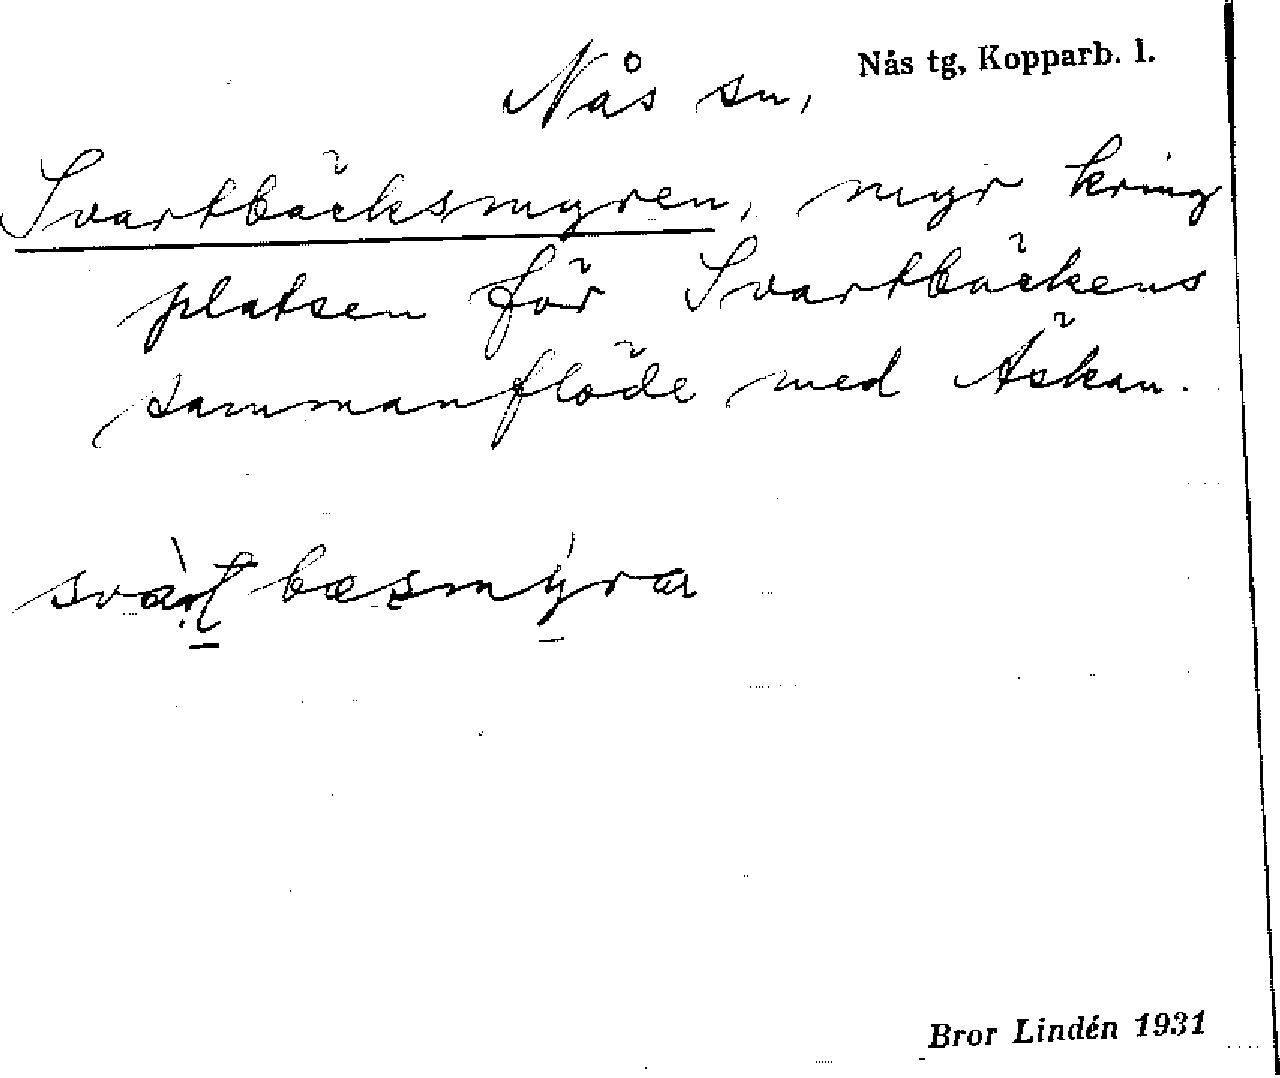 Nås tg, Kopparb. l.
Nås sn,
Svartbäcksmyren, myr kring
platsen för Svartbäckens
sammanflöde med Äskan.
svàrt bæsmýra
Bror Lindén 1931